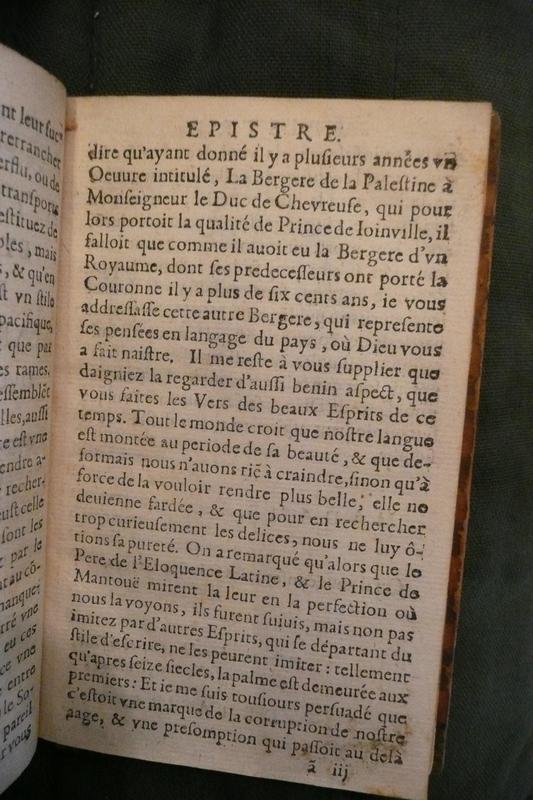 nt leur suc-
retrancher
erflu, ou de
transports
estituez de
bles, mais
s, & qu'en
st vn stile
pacifique,
t que par
es rames.
essemblēt
lles, aussi
re est vne
endre a-
recher-
eust celle
sont les
par le
manque:
tré vne
eu ces
ce vne
entre
le So-
pareil
r vous
EPISTRE.
dire qu'ayant donné il y a plusieurs années vn
Oeuure intitulé, La Bergere de la Palestine à
Monseigneur le Duc de Chevreuse, qui pour
lors portoit la qualité de Prince de Ioinville, il
falloit que comme il auoit eu la Bergere d'vn
Royaume, dont ses predecesseurs ont porté la
Couronne il y a plus de six cents ans, ie vous
addressasse cette autre Bergere, qui represente
ses pensées en langage du pays, où Dieu vous
a fait naistre. Il me reste à vous supplier que
daigniez la regarder d'aussi benin aspect, que
vous faites les Vers des beaux Esprits de ce
temps. Tout le monde croit que nostre langue
est montée au periode de sa beauté, & que de-
sormais nous n'auons riē à craindre, sinon qu'à
force de la vouloir rendre plus belle, elle ne
deuienne fardée, & que pour en rechercher
trop curieusement les delices, nous ne luy ô-
tions sa pureté. On a remarqué qu'alors que le
Pere de l'Eloquence Latine, & le Prince de
Mantouë mirent la leur en la perfection où
nous la voyons, ils furent suiuis, mais non pas
imitez par d'autres Esprits, qui se départant du
stile d'escrire, ne les peurent imiter: tellement
qu'apres seize siecles, la palme est demeurée aux
premiers: Et ie me suis tousiours persuadé que
c'estoit vne marque de la corruption de nostre
aage, & vne presomption qui passoit au delà
ã iij